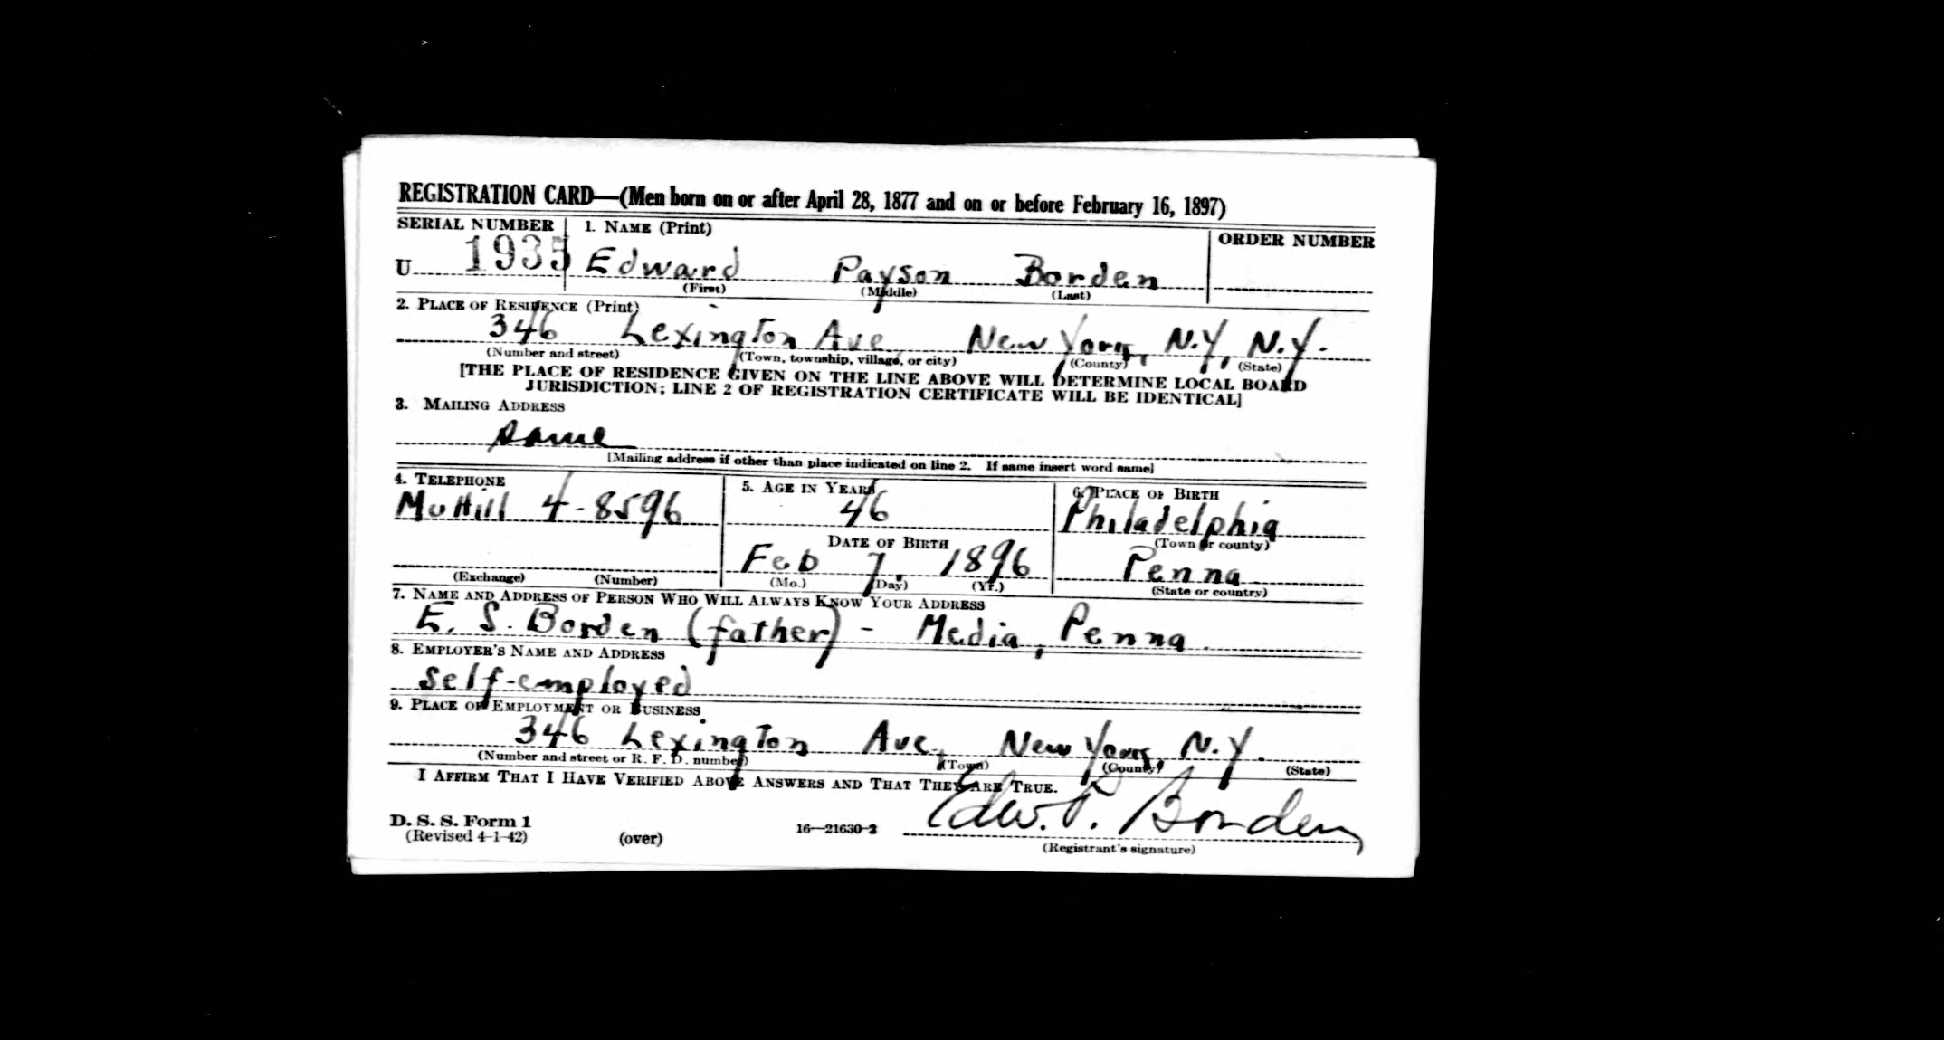 REGISTRATION CARD—(Men born on or after April 28, 1877 and on or before February 16, 1897)
SERIAL NUMBER 1. NAME (Print) ORDER NUMBER
U 1935 Edward Payson Borden
(First) (Middle) (Last)
2. PLACE OF RESIDENCE (Print)
346 Lexington Ave New York, N.Y, N.Y.
(Number and street) (Town, township, village, or city) (County) (State)
[THE PLACE OF RESIDENCE GIVEN ON THE LINE ABOVE WILL DETERMINE LOCAL BOARD
JURISDICTION; LINE 2 OF REGISTRATION CERTIFICATE WILL BE IDENTICAL]
3. MAILING ADDRESS
same
[Mailing address if other than place indicated on line 2. If same insert word same]
4. TELEPHONE 5. AGE IN YEARS 6. PLACE OF BIRTH
MuHill 4-8596 46 Philadelphia
DATE OF BIRTH (Town or county)
Feb 7 1896 Penna
(Exchange) (Number) (Mo.) (Day) (Yr.) (State or country)
7. NAME AND ADDRESS OF PERSON WHO WILL ALWAYS KNOW YOUR ADDRESS
E. S. Borden (father) - Media, Penna.
8. EMPLOYER'S NAME AND ADDRESS
self-employed
9. PLACE OF EMPLOYMENT OR BUSINESS
346 Lexington Ave, New York, N.Y.
(Number and street or R. F. D. number) (Town) (County) (State)
I AFFIRM THAT I HAVE VERIFIED ABOVE ANSWERS AND THAT THEY ARE TRUE.
Edw. P. Borden
D. S. S. Form 1
(Revised 4-1-42) (over) 16—21630-2
(Registrant's signature)